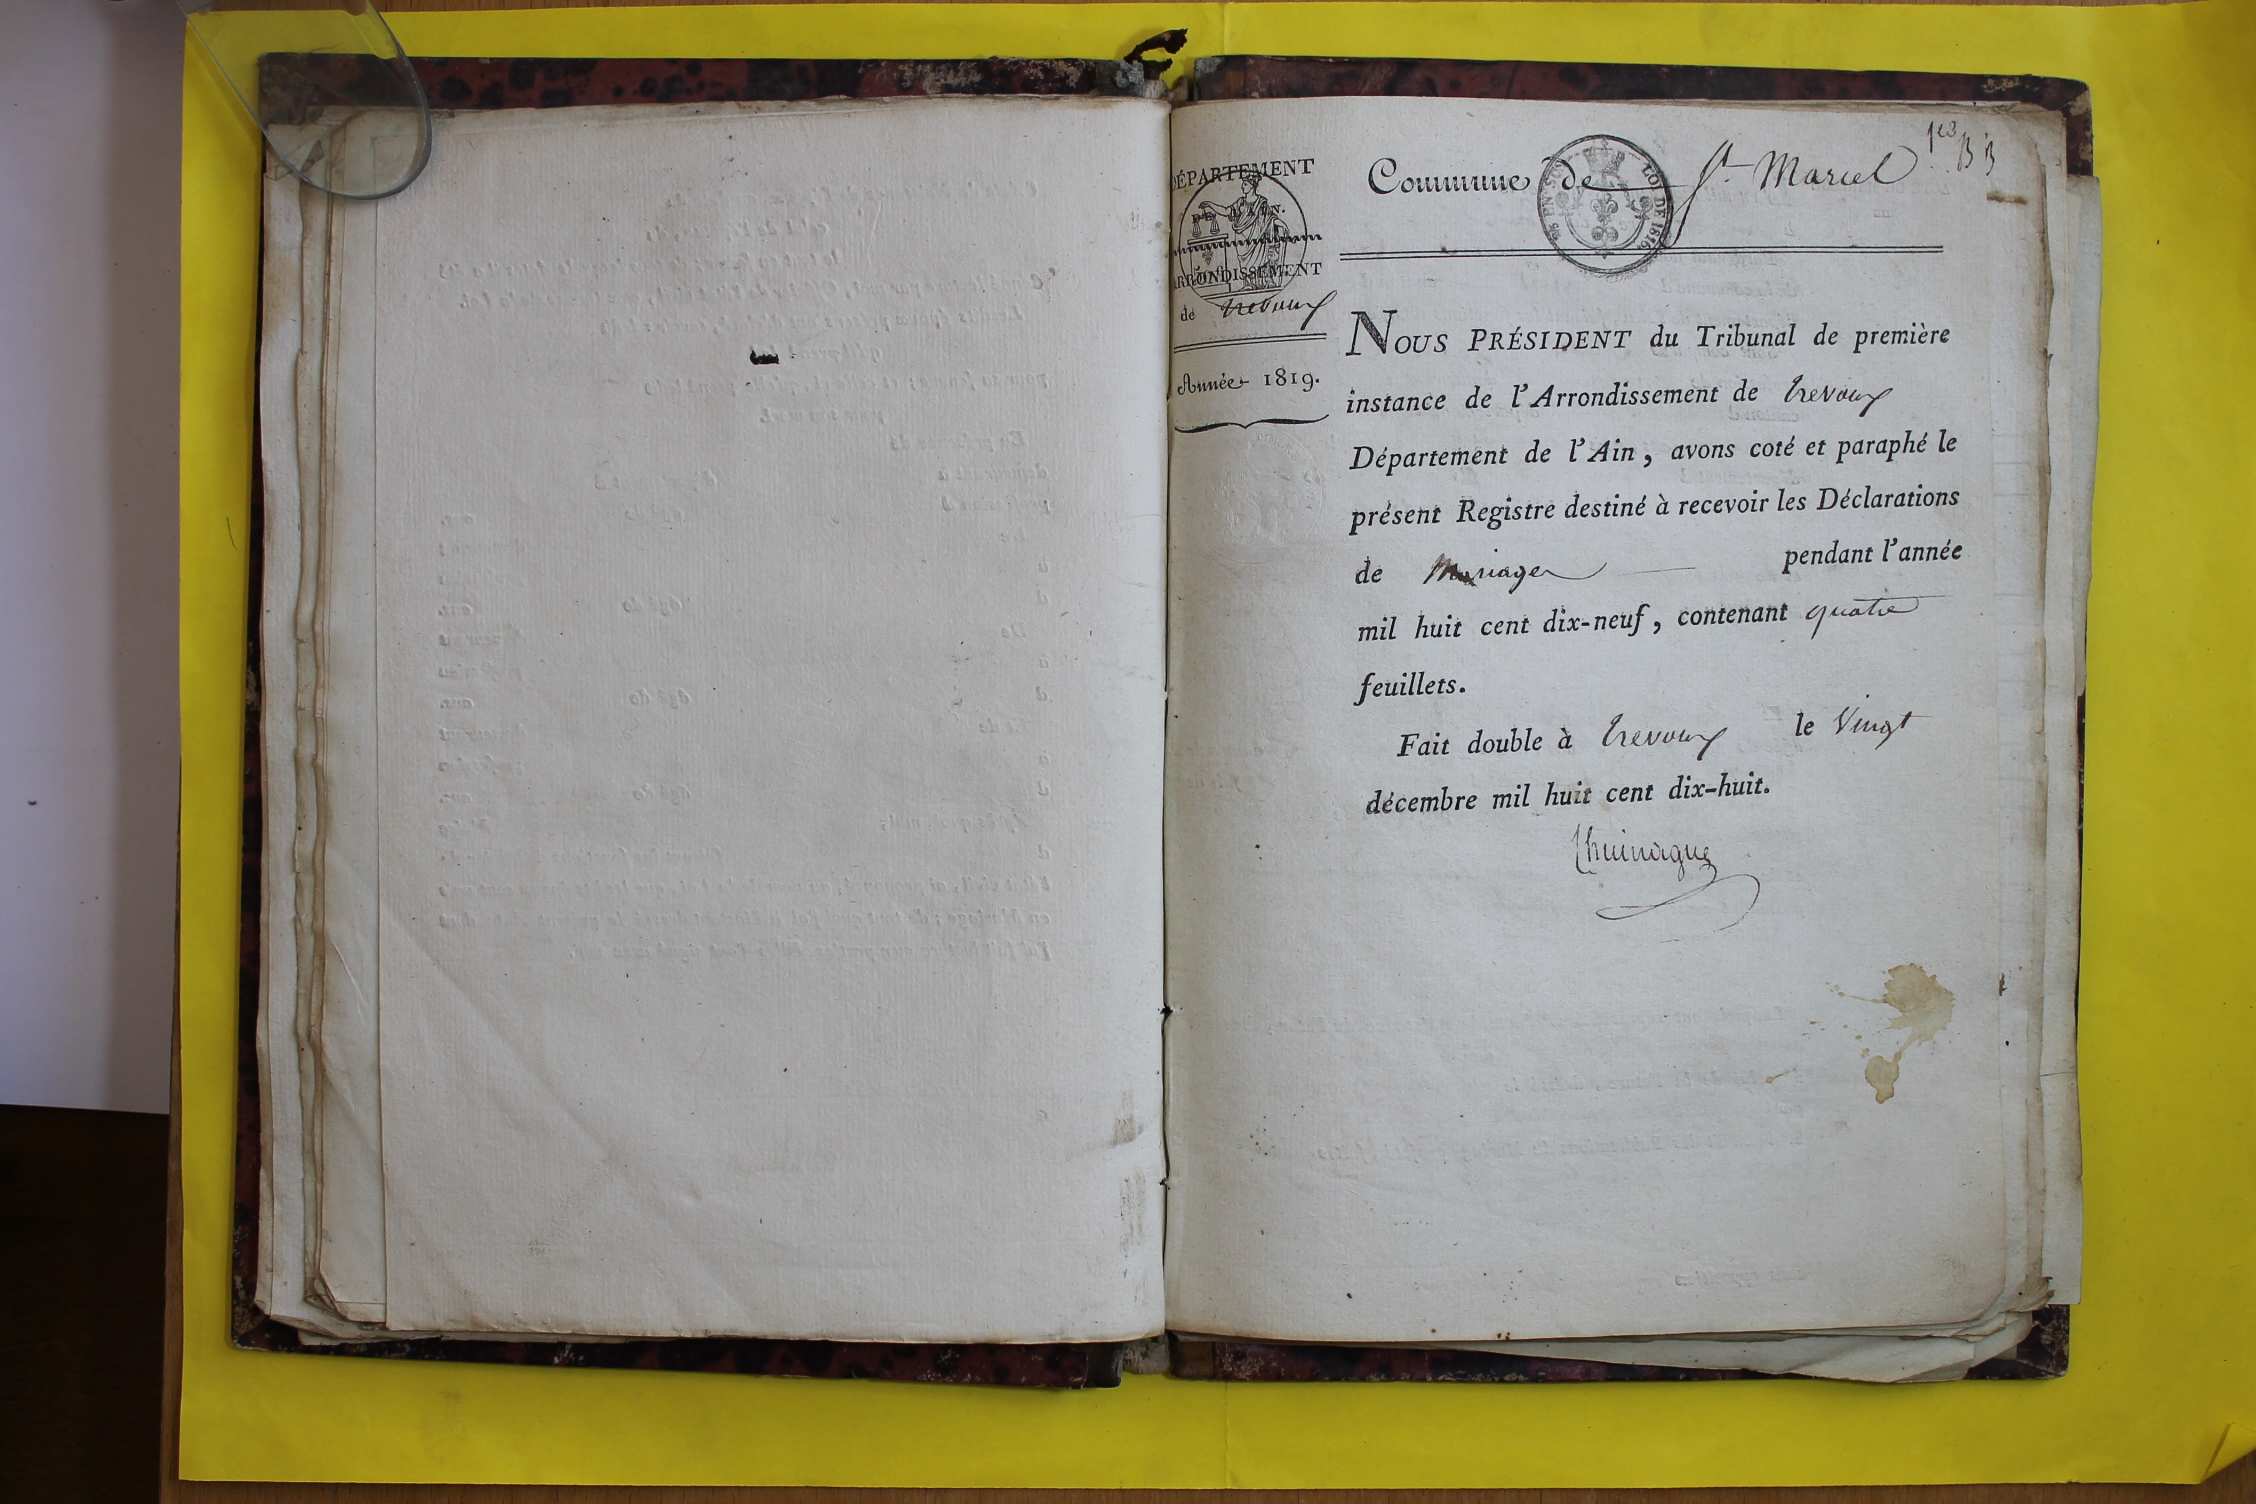 DÉPARTEMENT
DE L'AIN.
ARRONDISSEMENT
de Trevoux
Année 1819.
Commune de St Marcel
25 EN SUS
LOI DE 1816
NOUS PRÉSIDENT du Tribunal de première
instance de l'Arrondissement de Trevoux
Département de l'Ain, avons coté et paraphé le
présent Registre destiné à recevoir les Déclarations
de Mariages pendant l'année
mil huit cent dix-neuf, contenant quatre
feuillets.
Fait double à Trevoux le Vingt
décembre mil huit cent dix-huit.